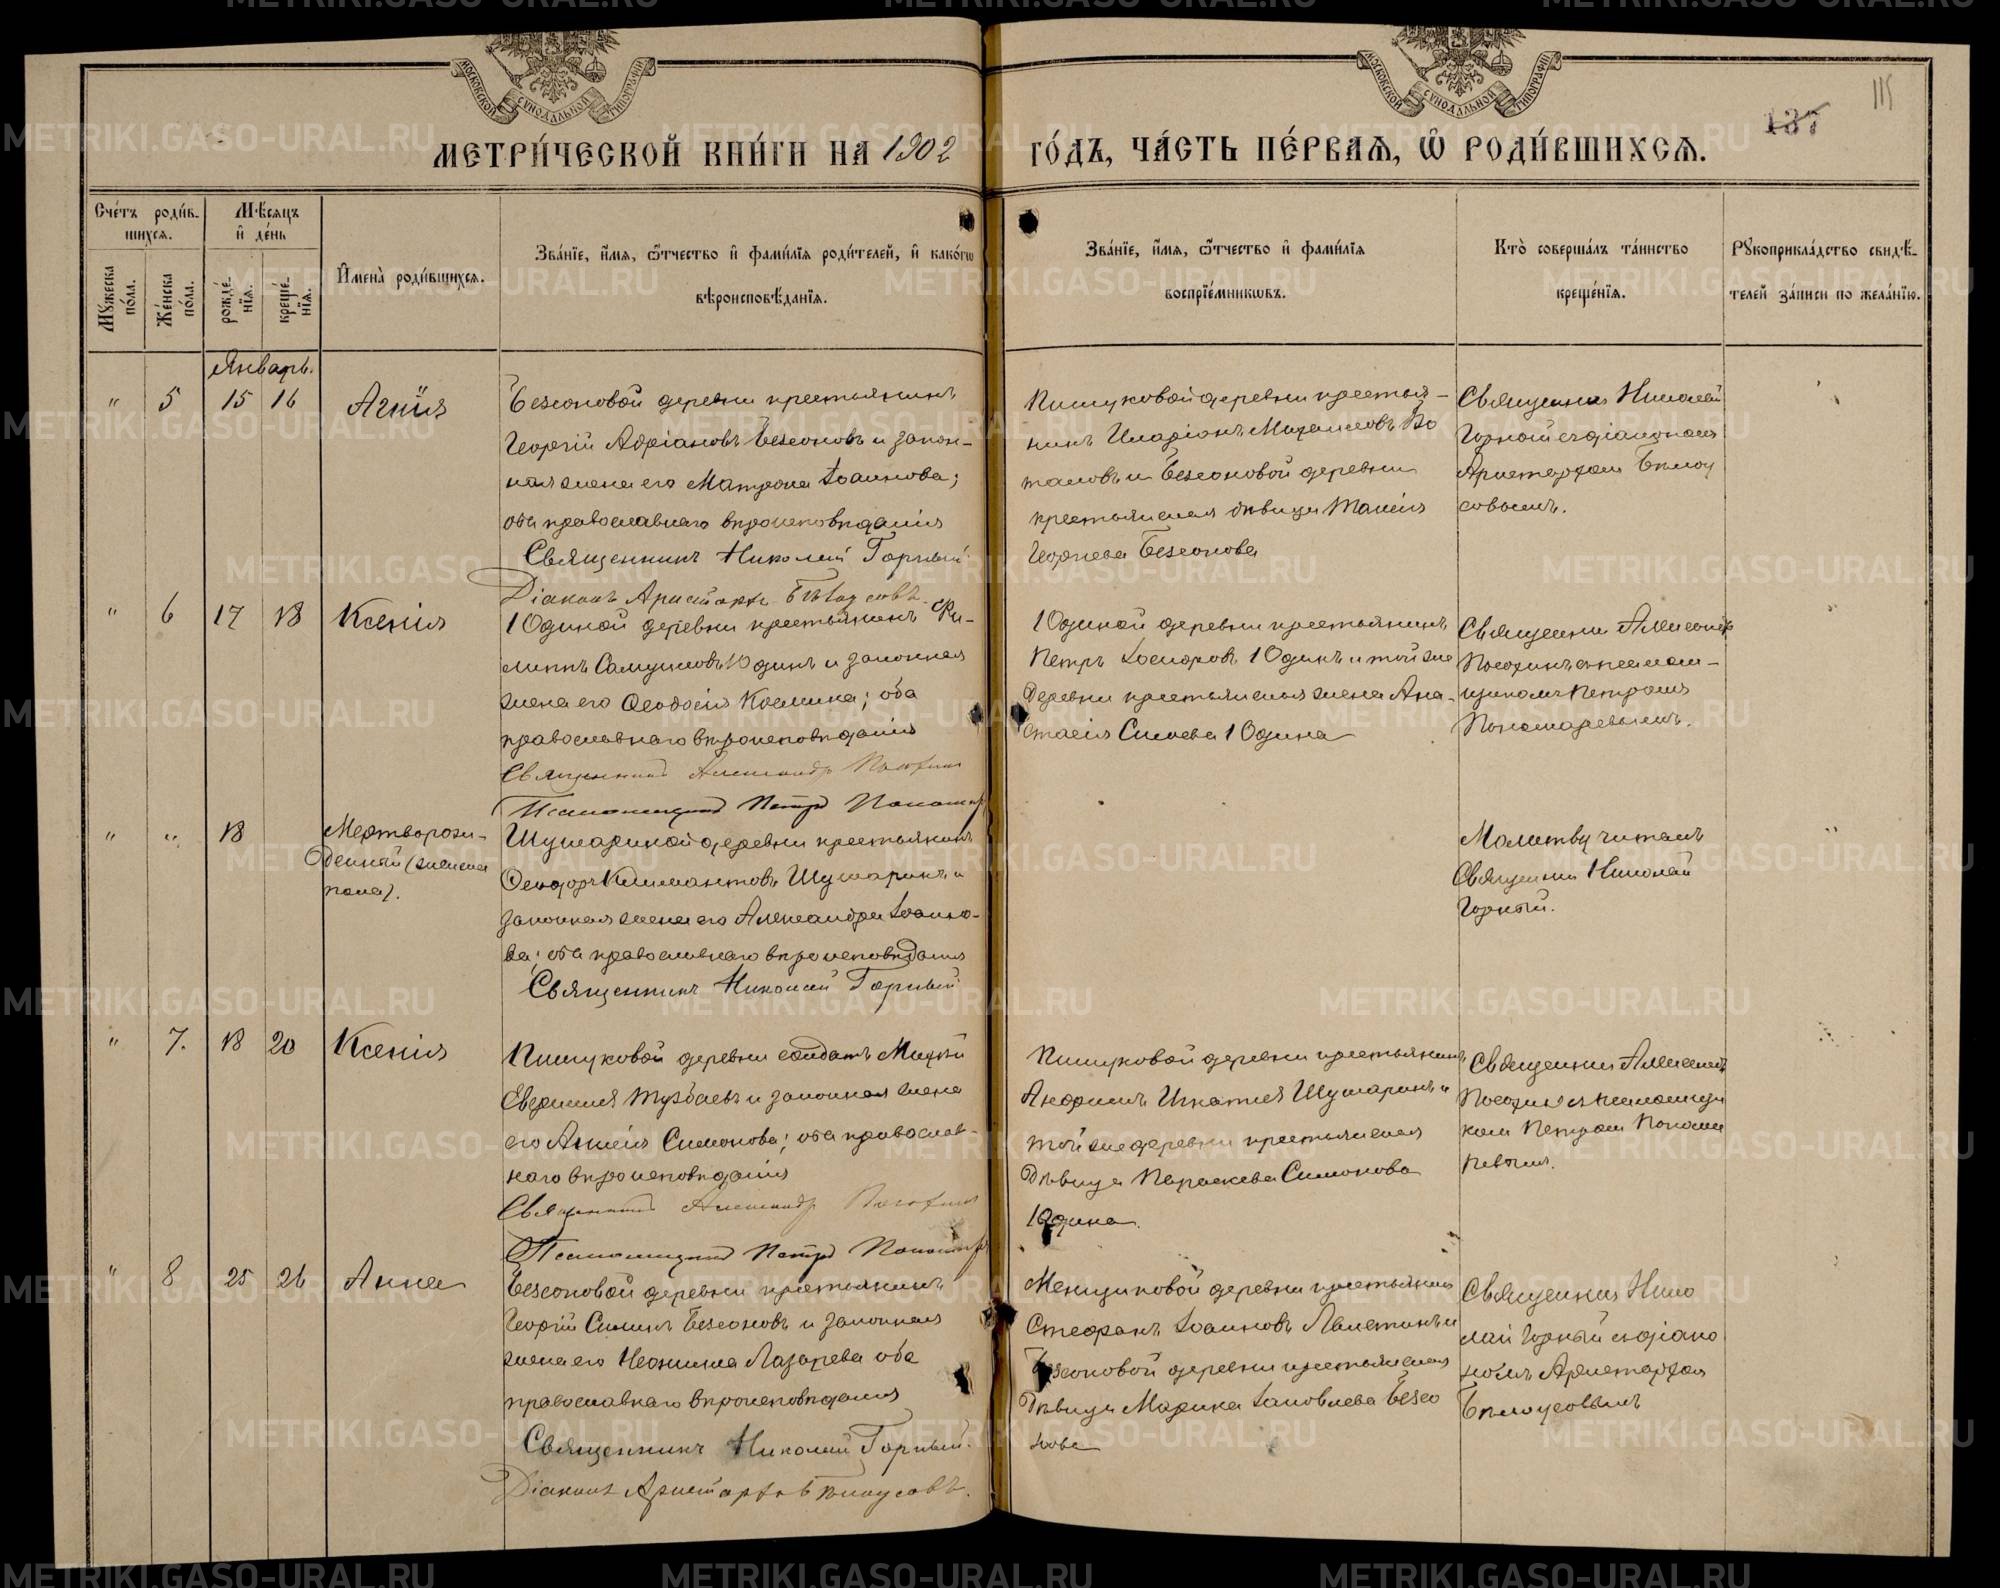 МОСКОВСКОЙ СѴНОДАЛЬНОЙ ТИПОГРАФІИ
МОСКОВСКОЙ СѴНОДАЛЬНОЙ ТИПОГРАФІИ
137
115
МЕТРИ́ЧЕСКОЙ КНИ́ГИ НА 1902
ГО́ДЪ, ЧА́СТЬ ПЕ́РВАЯ, Ѡ РОДИ́ВШИХСЯ.
Сче́тъ роди́в-
шихся.
Мѣ́сяцъ
и де́нь
Мꙋ́жеска
по́ла.
Же́нска
по́ла.
рожде́-
нїя.
креще́-
нїя.
Имена̀ роди́вшихся.
Зва́нїе, и́мя, ѻ҆́тчество и фами́лїя роди́телей, и како́гѡ
вѣроисповѣ́данїя.
Зва́нїе, и́мя, ѻ҆́тчество и фами́лїя
воспрїе́мникѡвъ.
Кто̀ соверша́лъ та́инство
креще́нїя.
Рꙋкоприкла́дство свидѣ́-
телей за́писи по жела́нїю.
Январь.
" 5 15 16 Агнія
Безсоновой деревни крестьянинъ
Георгій Адріановъ Безсоновъ и закон-
ная жена его Матрона Іоаннова;
оба православнаго вѣроисповѣданія
Священникъ Николай Горный
Діаконъ Аристархъ Бѣлоусовъ.
Пишуковой деревни крестья-
нинъ Иларіонъ
и Безсоновой деревни
крестьянская дѣвица Таисія
Георгіева Безсонова
Священникъ Николай
Горный съ діакономъ
Аристархомъ Бѣлоу
совымъ.
" 6 17 18 Ксенія
Юдиной деревни крестьянинъ Фи-
липпъ Самуиловъ Юдинъ и законная
жена его Феодосія Космина; оба
православнаго вѣроисповѣданія
Священникъ Александръ
Псаломщикъ Петръ Пономар
Юдиной деревни крестьянинъ
Петръ Юдинъ и той же
деревни крестьянская жена Ана-
стасія Юдина
Священникъ
съ псалом-
щикомъ Петромъ
Пономаревымъ.
" " 18
Мертворож-
денный (женска
пола).
Шушариной деревни крестьянинъ
Феодоръ Климантовъ Шушаринъ и
законная жена его Александра Іоанно-
ва; оба православнаго вѣроисповѣданія
Священникъ Николай Горный
Молитву читалъ
Священникъ Николай
Горный.
" 7. 18 20 Ксенія
Пишуковой деревни солдатъ
и законная жена
его Симонова; оба православ-
наго вѣроисповѣданія
Священникъ Александръ
Псаломщикъ Петръ Пономар
Пишуковой деревни крестьянинъ
Игнатія Шушаринъ и
той же деревни крестьянская
дѣвица Параскева Симонова
Юдина.
Священникъ
съ псаломщи
комъ Петромъ Понома
ревымъ.
" 8 25 26 Анна
Безсоновой деревни крестьянинъ
Георгій Безсоновъ и законная
жена его Неонила Лазарева оба
православнаго вѣроисповѣданія
Священникъ Николай Горный.
Діаконъ Аристархъ Бѣлоусовъ.
Менщиковой деревни крестьянинъ
Стефанъ Іоанновъ и
Безсоновой деревни крестьянская
дѣвица Марина Іаковлева Безсо
нова
Священникъ Нико
лай Горный съ діако
номъ Аристархомъ
Бѣлоусовымъ
METRIKI.GASO-URAL.RU